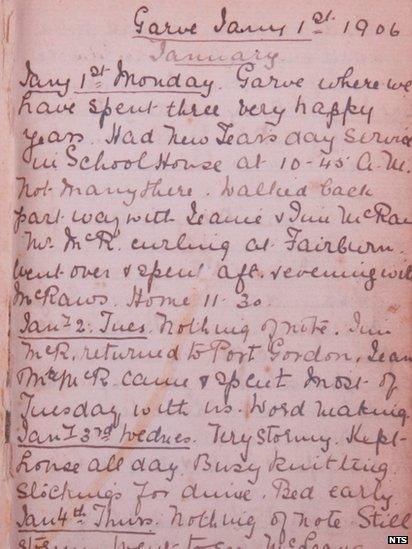 Garve Jany 1st 1906
January.
Jany 1st Monday. Garve where we
have spent three very happy
years. Had New Years day Service
in School House at 10-45 A.M.
Not many there. Walked back
part way with Jeanie & Ina McRae
Mr. McR. curling at Fairburn.
Went over & spent aft. & evening with
McRaes. Home 11-30.
Jany 2. Tues. Nothing of note. Ina
McR. returned to Port Gordon. Jean
& Mrs McR came & spent most of
Tuesday with us. Word making.
Jany 3rd Wednes. Very stormy. Kept
house all day. Busy knitting
stockings for Bed early
Jan 4th Thurs. Nothing of note. Still
NTS